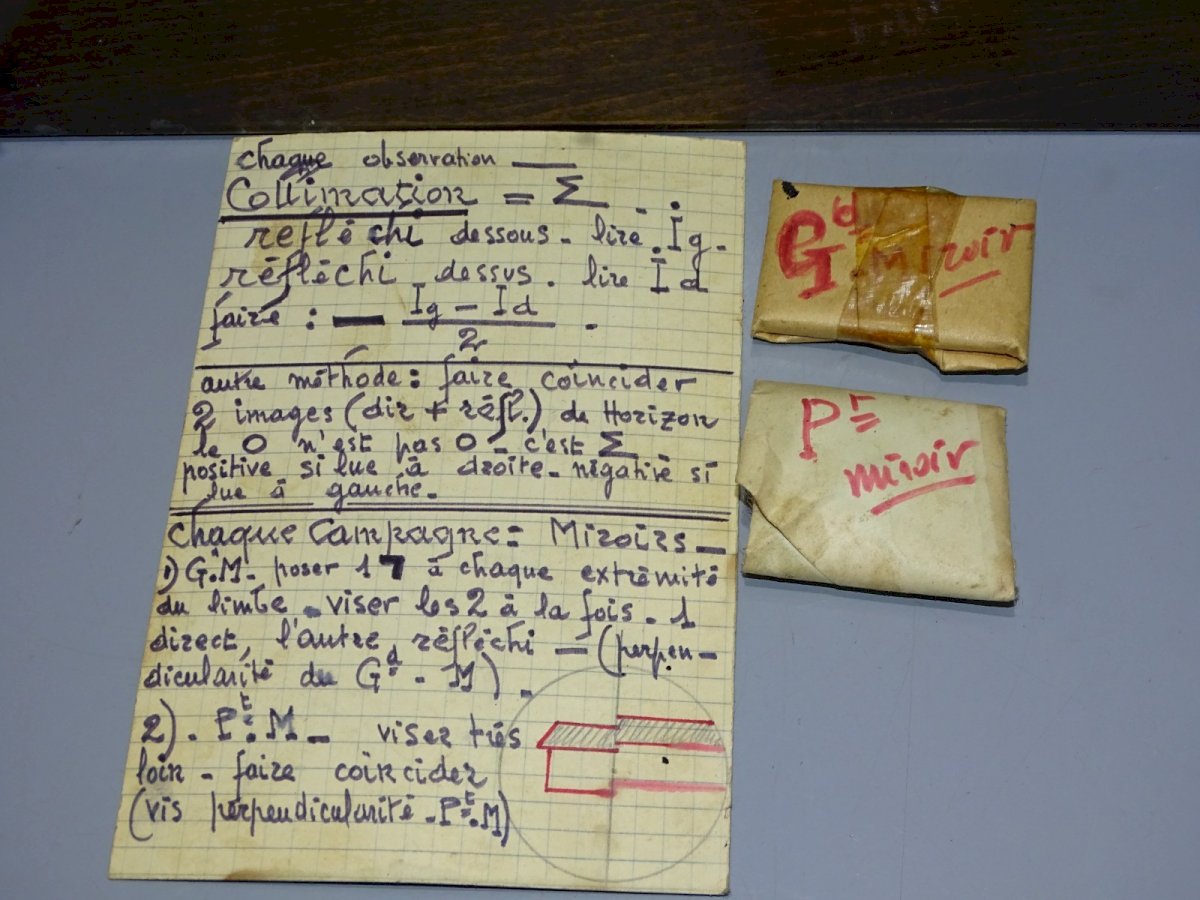 chaque observation —
Collimation = Σ
réfléchi dessous - lire Ig -
réfléchi dessus. lire Id
faire : — Ig - Id
2
autre méthode: faire coïncider
2 images (dir + réfl.) de Horizon
le 0 n'est pas 0 - c'est Σ
positive si lue à droite - négative si
lue à gauche -
Chaque Campagne: Miroirs -
1) G.M - poser 1 7 à chaque extrémité
du limbe - viser les 2 à la fois - 1
direct, l'autre réfléchi — (perpen-
dicularité du Gd - M) -
2) . Pt. M - viser très
loin - faire coïncider
(vis perpendicularité - Pt. M)
Gd miroir
Pt
miroir